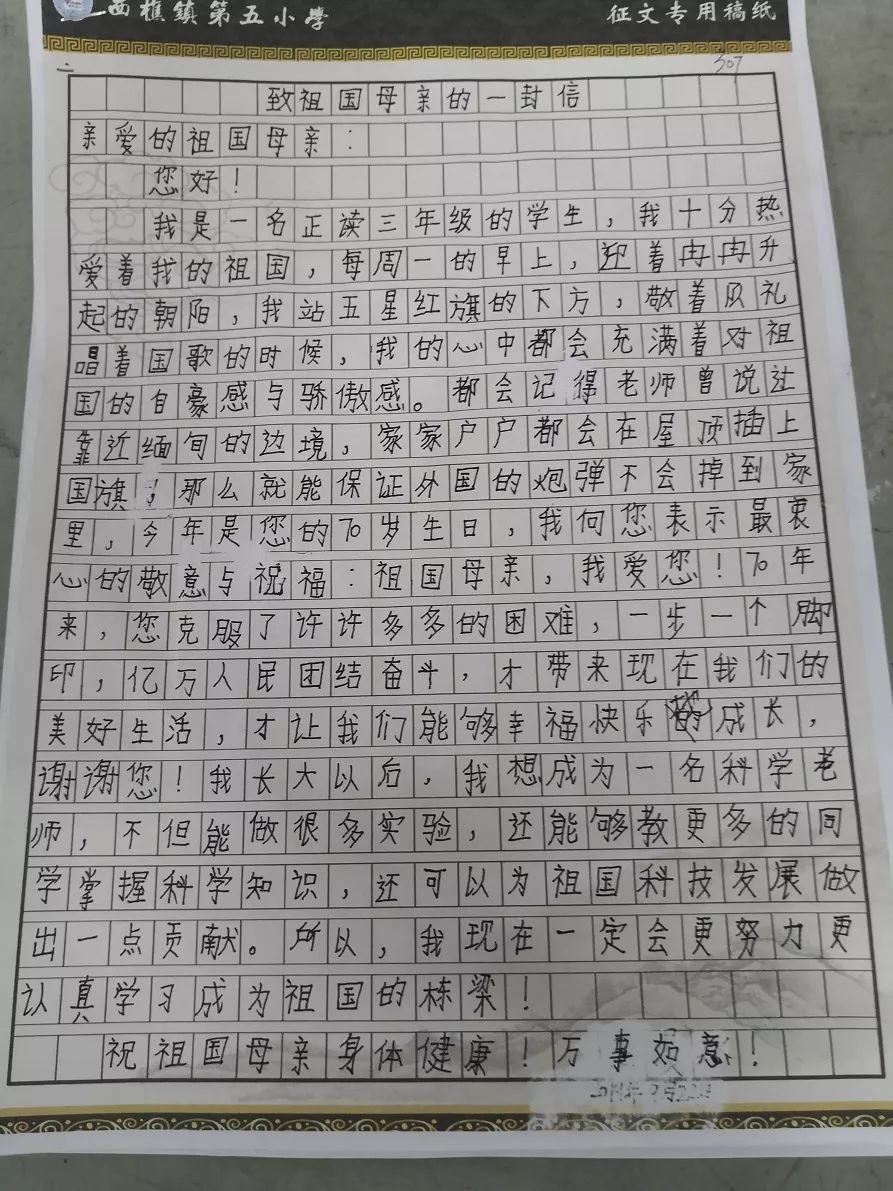 西樵镇第五小学
征文专用稿纸
307
致祖国母亲的一封信
亲爱的祖国母亲：
您好！
我是一名正读三年级的学生，我十分热
爱着我的祖国，每周一的早上，迎着冉冉升
起的朝阳，我站五星红旗的下方，敬着队礼
唱着国歌的时候，我的心中都会充满着对祖
国的自豪感与骄傲感。都会记得老师曾说过
靠近缅甸的边境，家家户户都会在屋顶插上
国旗，那么就能保证外国的炮弹不会掉到家
里，今年是您的70岁生日，我向您表示最衷
心的敬意与祝福：祖国母亲，我爱您！70年
来，您克服了许许多多的困难，一步一个脚
印，亿万人民团结奋斗，才带来现在我们的
美好生活，才让我们能够幸福快乐的成长，
谢谢您！我长大以后，我想成为一名科学老
师，不但能做很多实验，还能够教更多的同
学掌握科学知识，还可以为祖国科技发展做
出一点贡献。所以，我现在一定会更努力更
认真学习成为祖国的栋梁！
祝祖国母亲身体健康！万事如意！